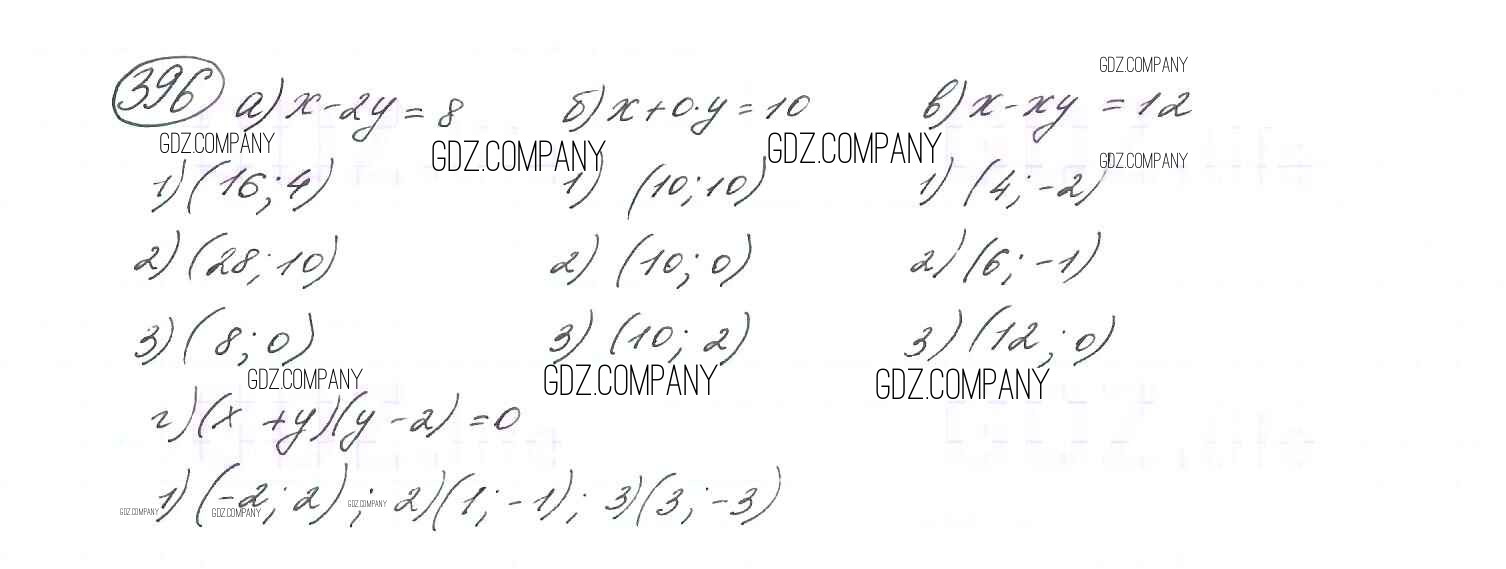 396 а) x - 2y = 8 б) x + 0·y = 10 в) x - xy = 12
GDZ.COMPANY
GDZ.COMPANY GDZ.COMPANY GDZ.COMPANY GDZ.COMPANY
1) (16; 4) 1) (10; 10) 1) (4; -2)
2) (28; 10) 2) (10; 0) 2) (6; -1)
3) (8; 0) 3) (10; 2) 3) (12; 0)
GDZ.COMPANY GDZ.COMPANY GDZ.COMPANY
г) (x + y)(y - 2) = 0
1) (-2; 2); 2) (1; -1); 3) (3; -3)
GDZ.COMPANY GDZ.COMPANY GDZ.COMPANY